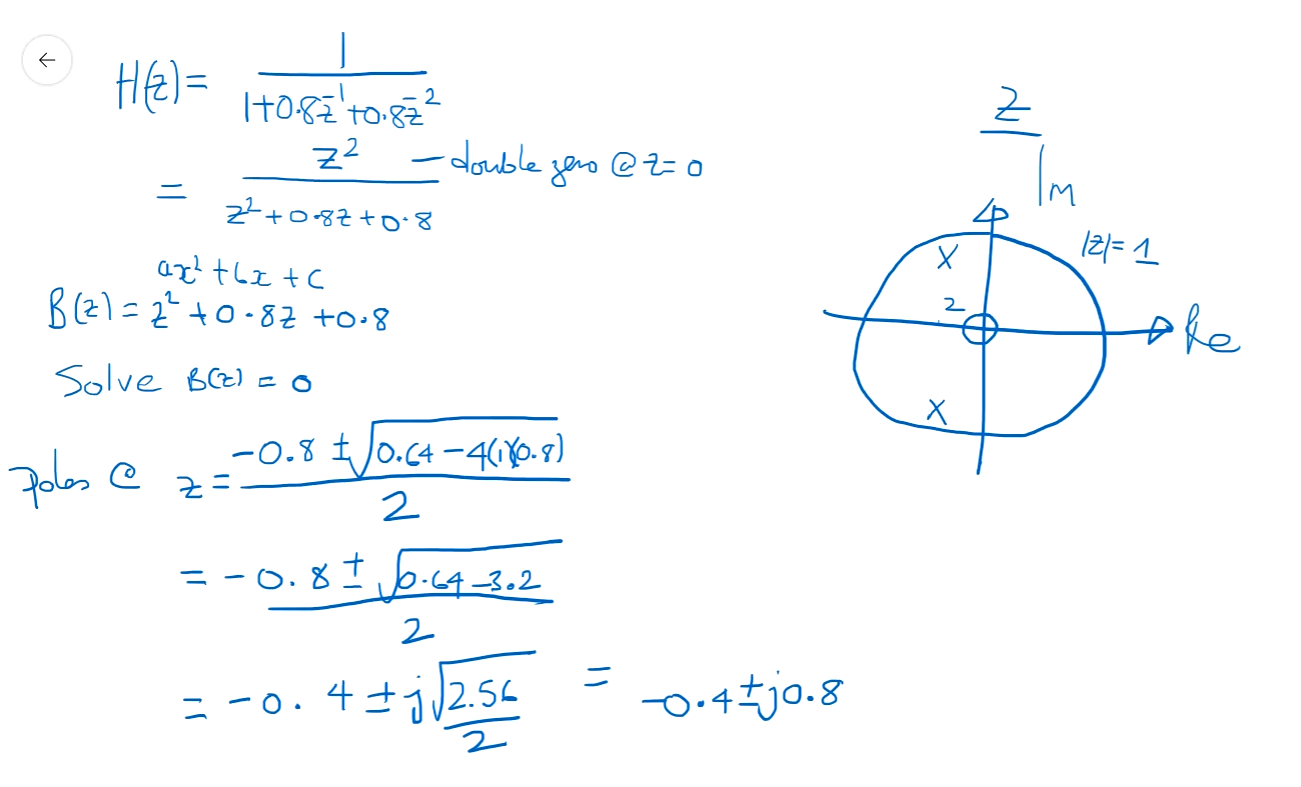 H(z) = 1 / (1+0.8z^-1+0.8z^-2)
= z^2 / (z^2+0.8z+0.8) — double zero @ z=0
ax^2+bx+c
B(z) = z^2+0.8z+0.8
Solve B(z) = 0
Poles @ z = (-0.8 ± √(0.64-4(1)(0.8))) / 2
= (-0.8 ± √(0.64-3.2)) / 2
= -0.4 ± j√2.56 / 2 = -0.4±j0.8
z
Im
|z|=1
2
Re